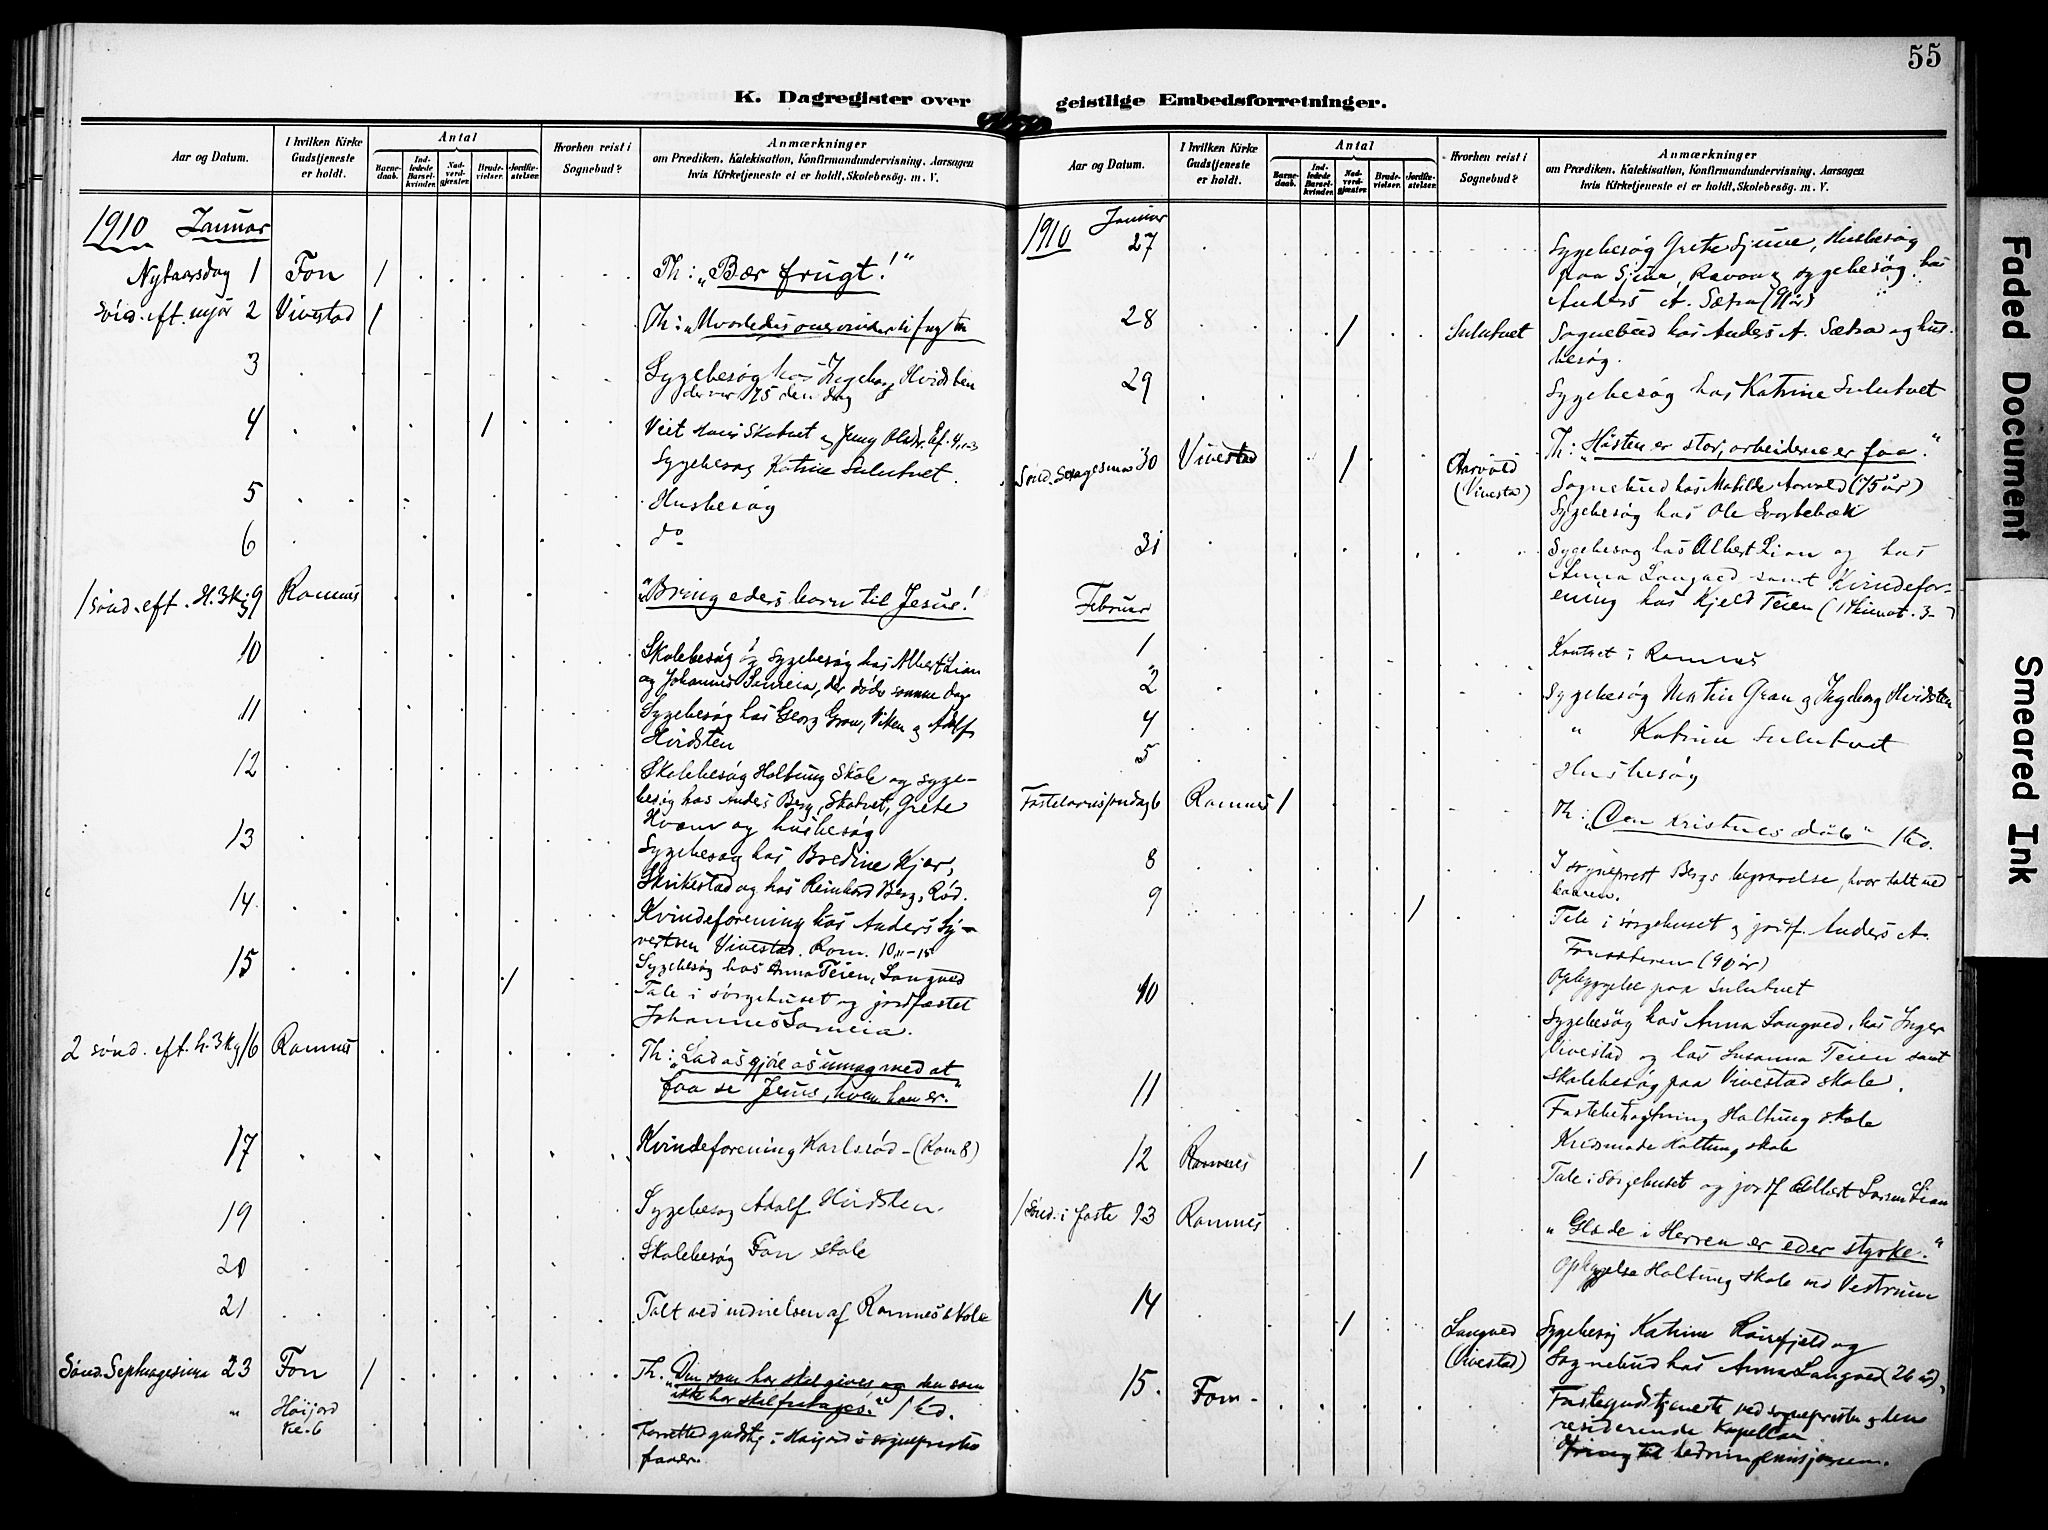 55
K. Dagregister over
Aar og Datum.
I hvilken Kirke Gudstjeneste er holdt.
Antal
Barnedaab.
Indledede Barselkvinder.
Nadverdgjæster.
Brudevielser.
Jordfæstelser.
Hvorhen reist i Sognebud?
Anmærkninger
om Prædiken, Katekisation, Konfirmandundervisning, Aarsagen
hvis Kirketjeneste ei er holdt, Skolebesøg. m. V.
1910 Januar
Nytaarsdag 1 Fon / Th: „Bær frugt!"
Sønd. eft. nyår 2 Vivestad / Th:
3 Sygebesøg hos Ingeborg Hvidsten
der var 75 den dag
4 / Viet Skatvet og Ef. 4,
Sygebesøg Katrine Sulutvet.
5 Husbesøg
6 do
1 sønd. eft. H. 3 kg 9 Ramnes „Bring eders barn til Jesus!"
10 Skolebesøg og sygebesøg hos Albert Lian
og Johannes Semeia, der døde samme dag
11 Sygebesøg hos Georg Gran, Viken og Adolf
Hvidsten
12 Skolebesøg Holtung Skole og syge-
besøg hos Anders Berg, Skatvet, Grete
Hvam og husbesøg
13 Sygebesøg hos Bredine Kjær,
Skrikestad og hos Reinhard Berg, Rød.
14. Kvindeforening hos Anders Sy-
vertsen Vivestad. Rom. 10,11-15
15 / Sygebesøg hos Anna Teien, Langved
Tale i sørgehuset og jordfæstet
Johannes Semeia.
2 sønd. eft. h. 3 kg 16 Ramnes Th: „Lad os gjøre os umag med at
faa se Jesus, hvem han er."
17 Kvindeforening Karlsrød - (Rom 8)
19 Sygebesøg Adolf Hvidsten.
20 Skolebesøg Fon skole
21 Talt ved indvielsen af Ramnes skole
Sønd. Septuagesima 23 Fon / Th. „Den som har skal gives og den som
ikke har skal fratages."
„ Høijord
Kl. 6
Forrettet gudstj. i Høijord i sogneprestens
geistlige Embedsforretninger.
Aar og Datum.
I hvilken Kirke Gudstjeneste er holdt.
Antal
Barnedaab.
Indledede Barselkvinder.
Nadverdgjæster.
Brudevielser.
Jordfæstelser.
Hvorhen reist i Sognebud?
Anmærkninger
om Prædiken, Katekisation, Konfirmandundervisning, Aarsagen
hvis Kirketjeneste ei er holdt, Skolebesøg. m. V.
1910 Januar
27 Sygebesøg Grete Sjuve, Husbesøg
paa Sjuve, og sygebesøg hos
Anders A. Sætra (91 år)
28 / Sulutvet Sognebud hos Anders A. Sætra og hus-
besøg.
29 Sygebesøg hos Katrine Sulutvet
Sønd. Sexagesima 30 Vivestad / Aarvold
(Vivestad)
Th: „Høsten er stor, arbeiderne er faa."
Sognebud hos Matilde Aarvold (75 år)
Sygebesøg hos Ole Svartebæk
31 Sygebesøg hos Albert Lian og hos
Anna Langved samt Kvindefor-
ening hos Kjeld Teien
Februar
1 Kontret i Ramnes
2 Sygebesøg Martin Gran og Ingeborg Hvidsten
4 „ Katrine Sulutvet
5 Husbesøg
Fastelavnssøndag 6 Ramnes / Th: „Den kristnes dåb"
8 I sogneprest Bergs begravelse, hvor talt ved
baaren.
9 / Tale i sørgehuset og jordf. Anders A.
(90 år)
10 Opbyggelse paa Sulutvet
Sygebesøg hos Anna Langved, hos Inger
Vivestad og hos Susanna Teien samt
skolebesøg paa Vivestad skole.
11 Fastebetragtning Holtung skole
Holtung skole
12 Ramnes / Tale i sørgehuset og jordf Albert Larsen Lian
1 Sønd. i faste 13 Ramnes „Glæde i Herren er eder styrke."
Opbyggelse Holtung skole ved Vestrum
14 / Langved
(Vivestad)
Sygebesøg Katrine og
Sognebud hos Anna Langved (26 år)
15. Fon - Fastegudstjeneste ved sognepresten og den
residerende kapellan
til hedningemissjonen.
Faded Document
Smeared Ink